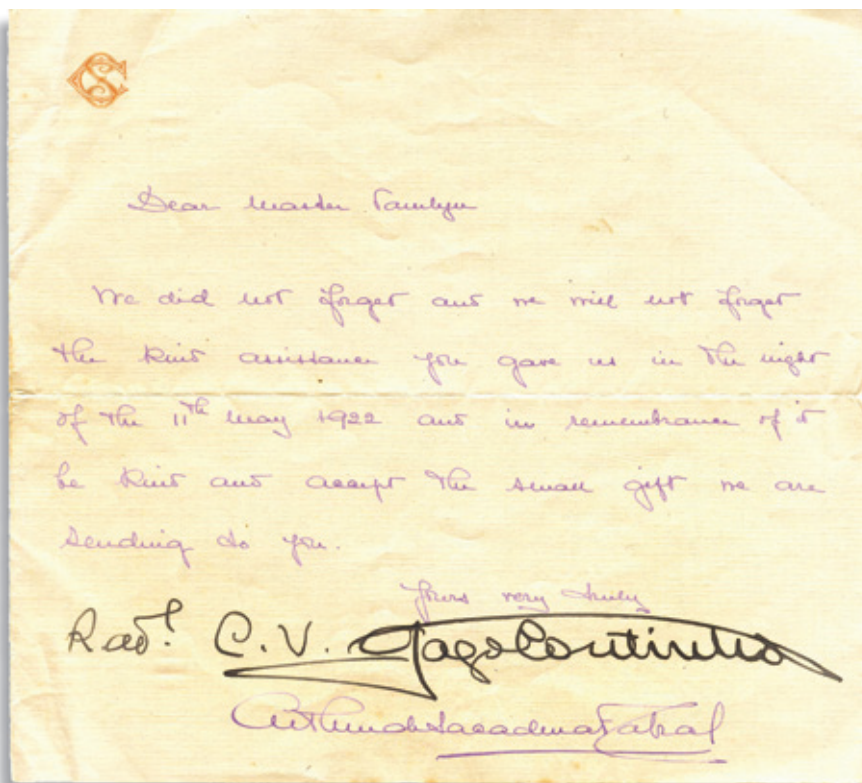 Dear Master Tamlyn
We did not forget and we will not forget
the kind assistance you gave us in the night
of the 11th May 1922 and in remembrance of it
be kind and accept the small gift we are
sending to you.
Yours very truly
Rad. C. V. Gago Coutinho
Arthur de Sacadura Cabral